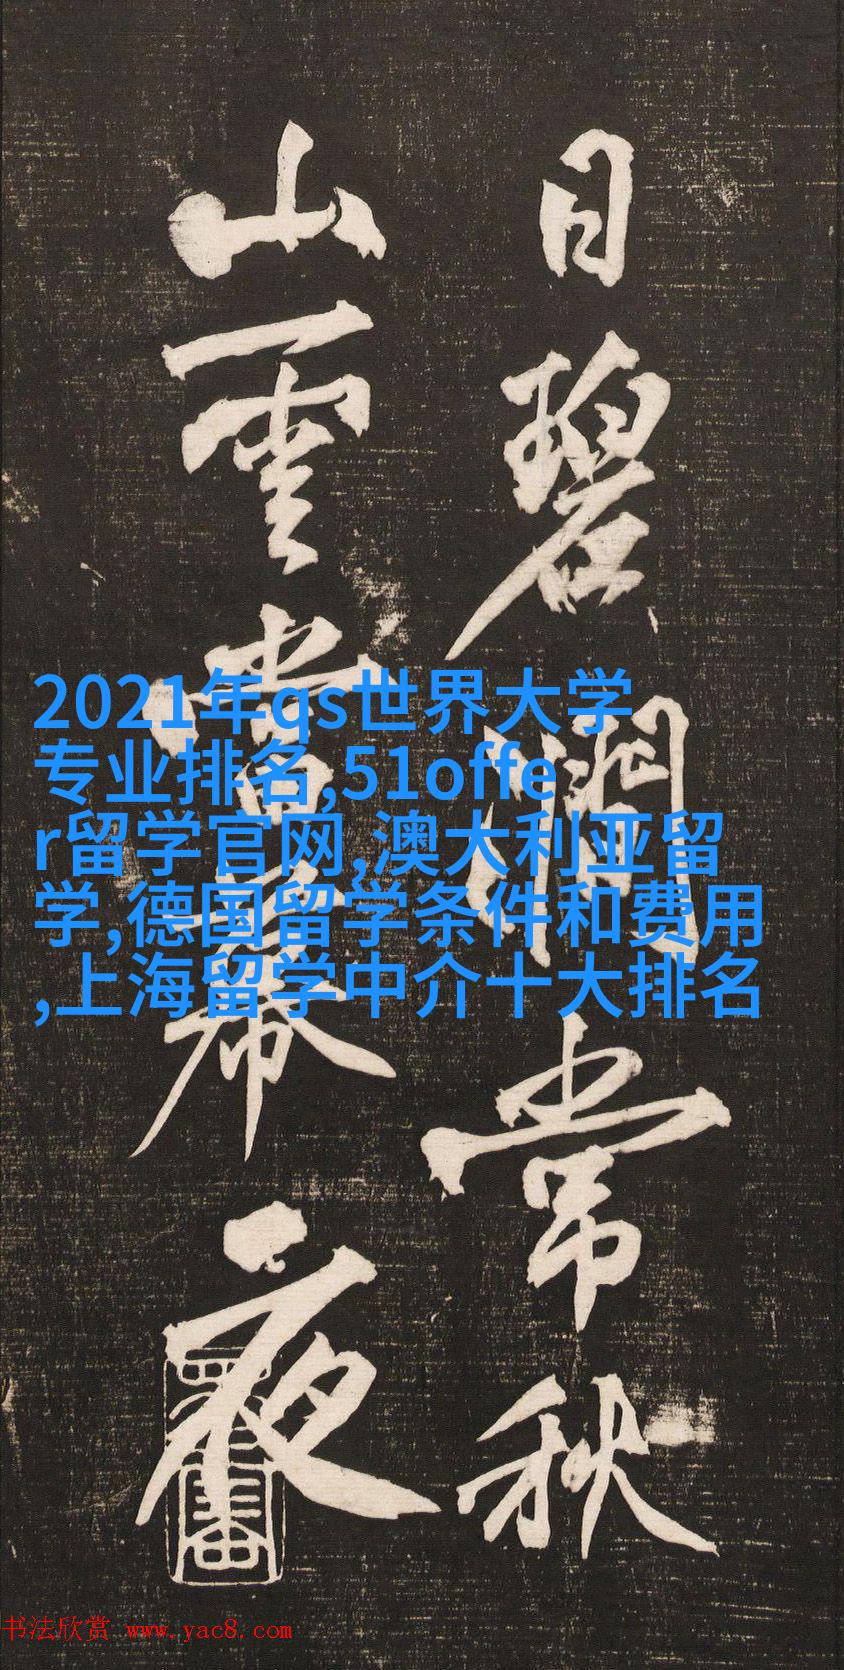 日碧澗常秋
山雲當幕夜
2021年qs世界大学
专业排名,51offe
r留学官网,澳大利亚留
学,德国留学条件和费用
,上海留学中介十大排名
书法欣赏 www.yac8.com